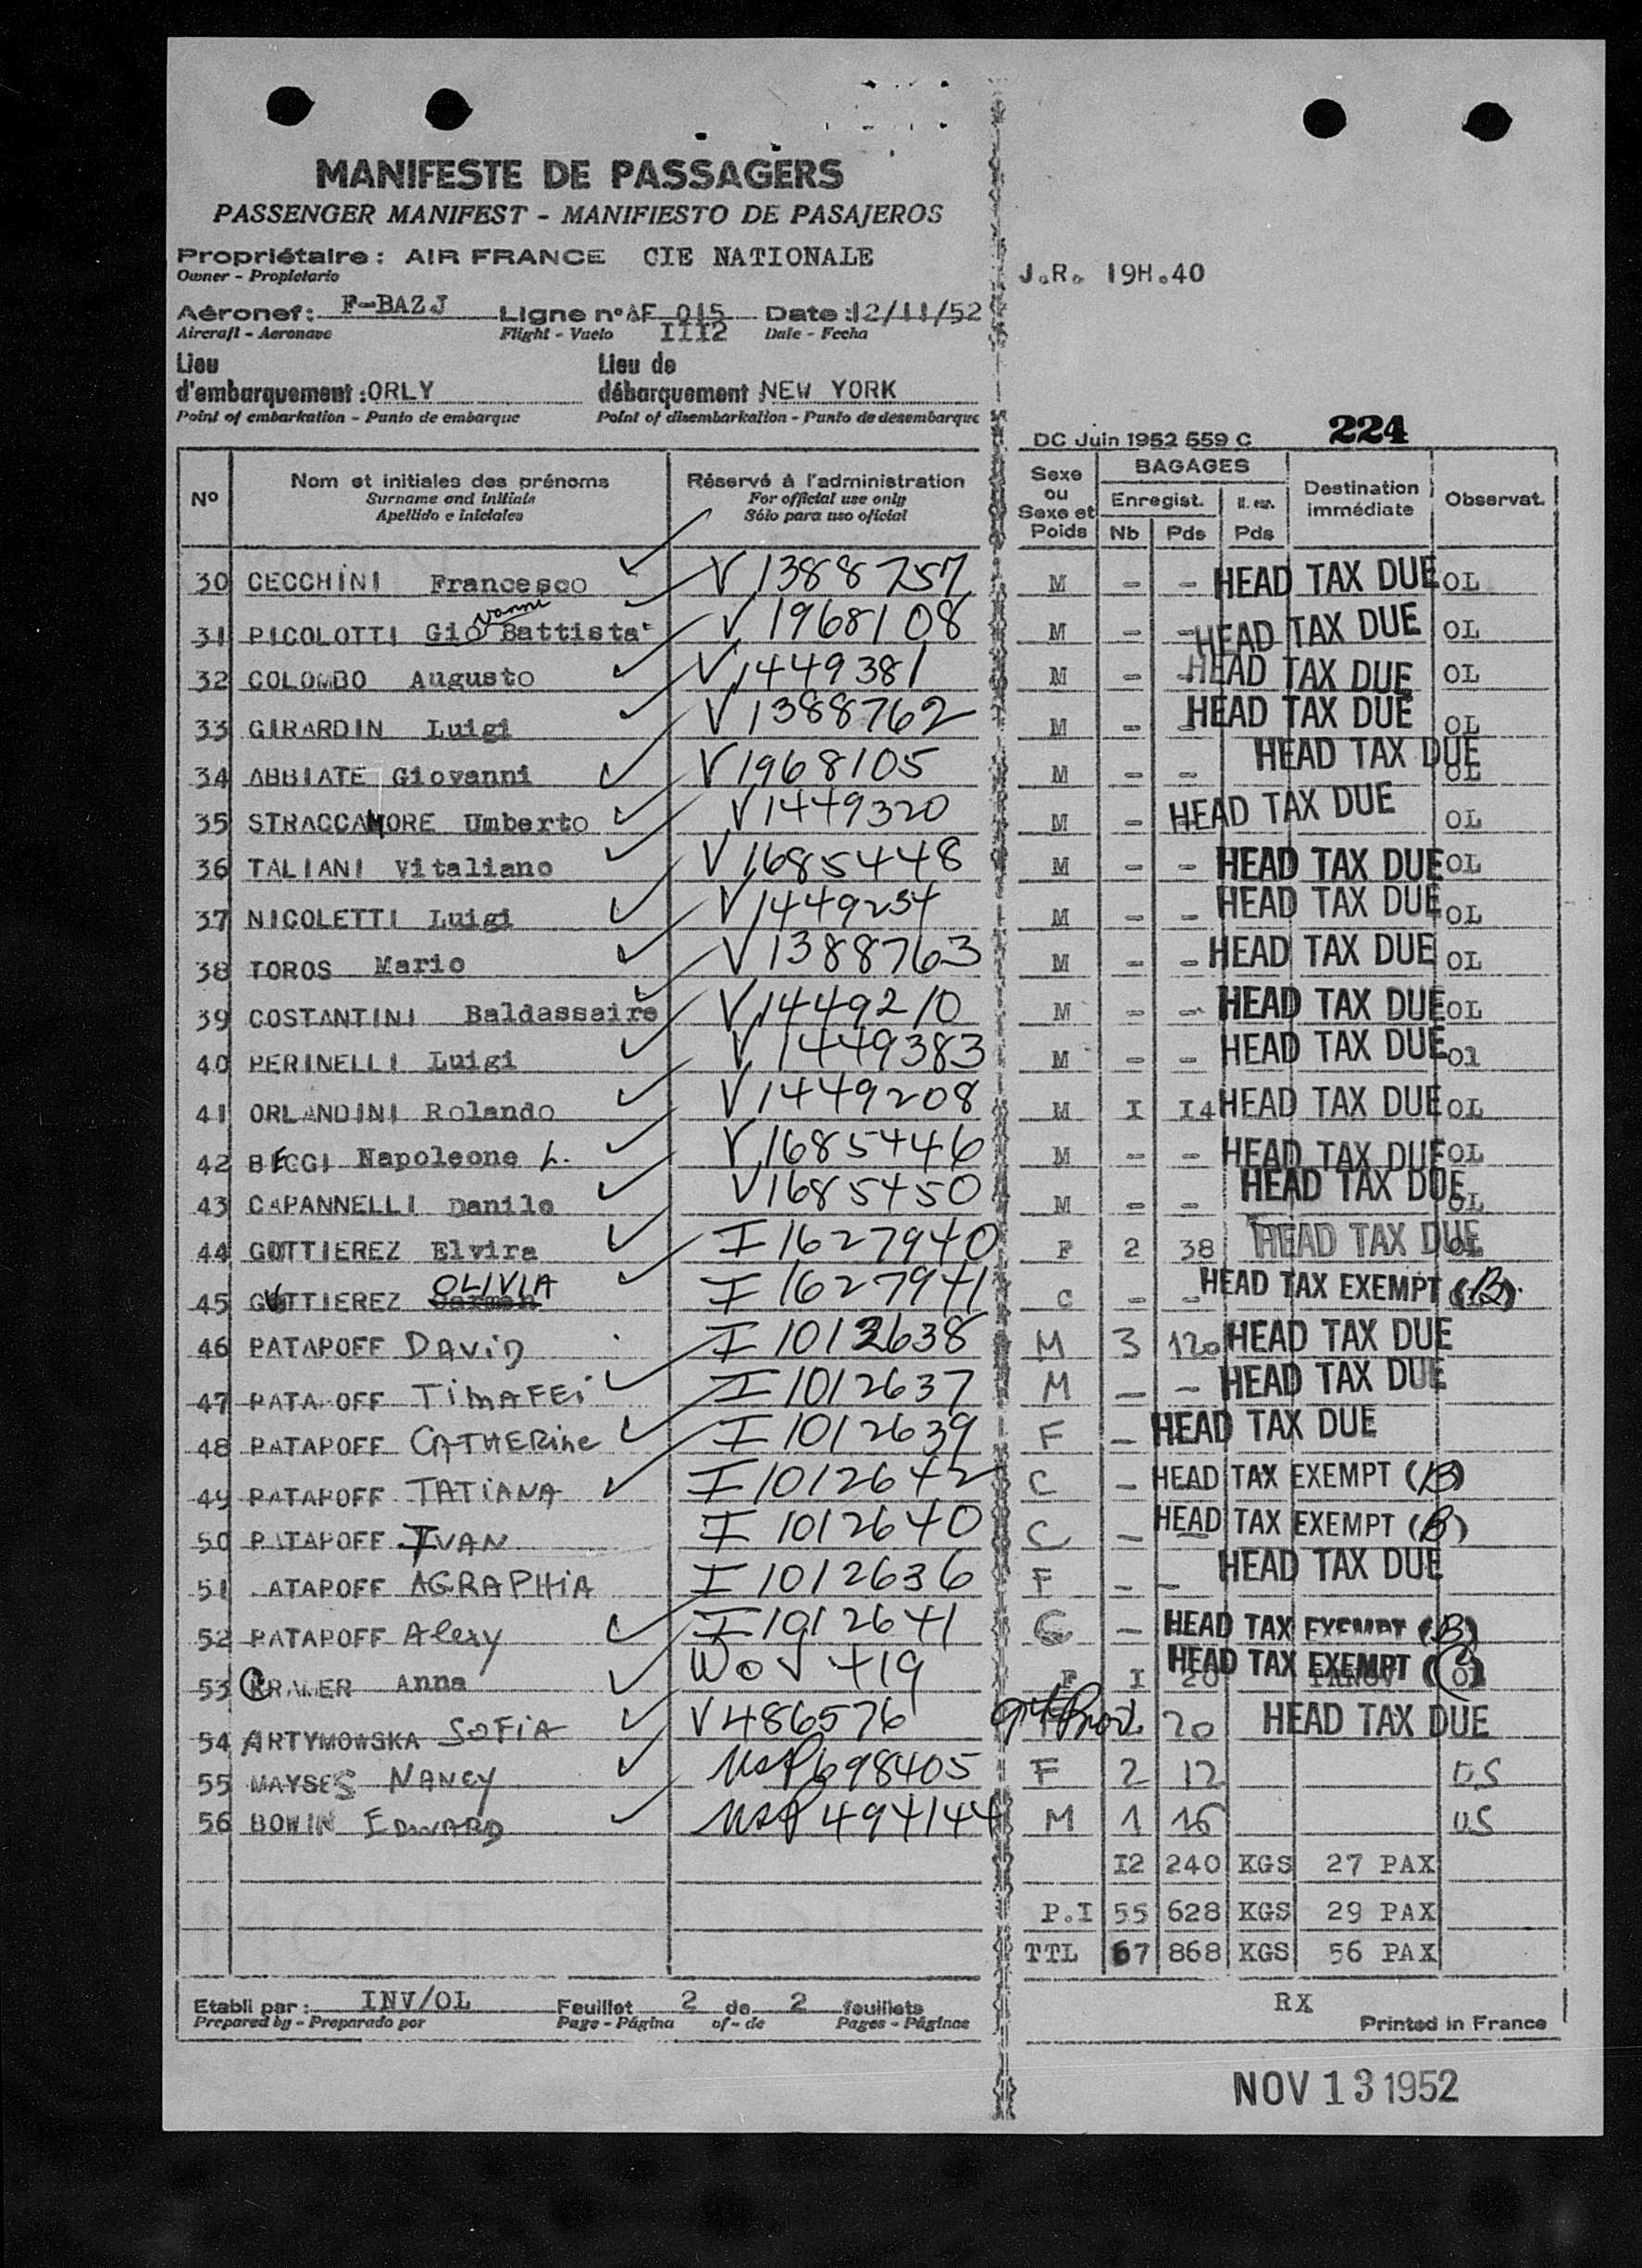 MANIFESTE DE PASSAGERS
PASSENGER MANIFEST - MANIFIESTO DE PASAJEROS
Propriétaire : AIR FRANCE CIE NATIONALE
Owner - Propietario
J.R. 19H.40
Aéronef: F-BAZJ Ligne n° AF 015 Date : 12/11/52
Aircraft - Aeronave Flight - Vuelo III2 Date - Fecha
Lieu d'embarquement : ORLY Lieu de débarquement NEW YORK
Point of embarkation - Punto de embarque Point of disembarkation - Punto de desembarque
DC Juin 1952 559 C 224
N° Nom et initiales des prénoms Réservé à l'administration Sexe ou Sexe et Poids BAGAGES Destination immédiate Observat.
Surname and initials For official use only Enregist.
Apellido e iniciales Sólo para uso oficial Nb Pds Pds
30 CECCHINI Francesco V 1388757 M - - HEAD TAX DUE OL
31 PICOLOTTI Giovanni Battista V 1968108 M - - HEAD TAX DUE OL
32 COLOMBO Augusto V 1449381 M - - HEAD TAX DUE OL
33 GIRARDIN Luigi V 1388762 M - - HEAD TAX DUE OL
34 ABBIATE Giovanni V 1968105 M - - HEAD TAX DUE OL
35 STRACCAMORE Umberto V 1449320 M - HEAD TAX DUE OL
36 TALIANI Vitaliano V 1685448 M - - HEAD TAX DUE OL
37 NICOLETTI Luigi V 1449254 M - - HEAD TAX DUE OL
38 TOROS Mario V 1388763 M - - HEAD TAX DUE OL
39 COSTANTINI Baldassaire V 1449210 M - - HEAD TAX DUE OL
40 PERINELLI Luigi V 1449383 M - - HEAD TAX DUE Ol
41 ORLANDINI Rolando V 1449208 M I I4 HEAD TAX DUE OL
42 BECGI Napoleone L. V 1685446 M - - HEAD TAX DUE OL
43 CAPANNELLI Danilo V 1685450 M - - HEAD TAX DUE OL
44 GUTTIEREZ Elvira I 1627940 F 2 38 HEAD TAX DUE OL
45 GUTTIEREZ OLIVIA I 1627941 C - - HEAD TAX EXEMPT (B)
46 PATAPOFF DAViD I 1012638 M 3 120 HEAD TAX DUE
47 PATAPOFF TiMAFEi I 1012637 M - - HEAD TAX DUE
48 PATAPOFF CATHERine I 1012639 F - HEAD TAX DUE
49 PATAPOFF TATiANA I 1012642 C - HEAD TAX EXEMPT (B)
50 PATAPOFF IVAN I 1012640 C - HEAD TAX EXEMPT (B)
51 ATAPOFF AGRAPHiA I 1012636 F - - HEAD TAX DUE
52 PATAPOFF Alexy I 1012641 C - HEAD TAX EXEMPT (B)
53 KRAMER Anna F I 20 HEAD TAX EXEMPT OL
54 ARTYMOWSKA SOFiA V 486576 20 HEAD TAX DUE
55 MAYSES NANCY USP 698405 F 2 12 US
56 BOWIN EDWARD USP 494144 M 1 16 US
I2 240 KGS 27 PAX
P.I 55 628 KGS 29 PAX
TTL 67 868 KGS 56 PAX
Etabli par : INV/OL Feuillet 2 de 2 feuillets RX
Prepared by - Preparado por Page - Página of - de Pages - Páginas Printed in France
NOV 13 1952